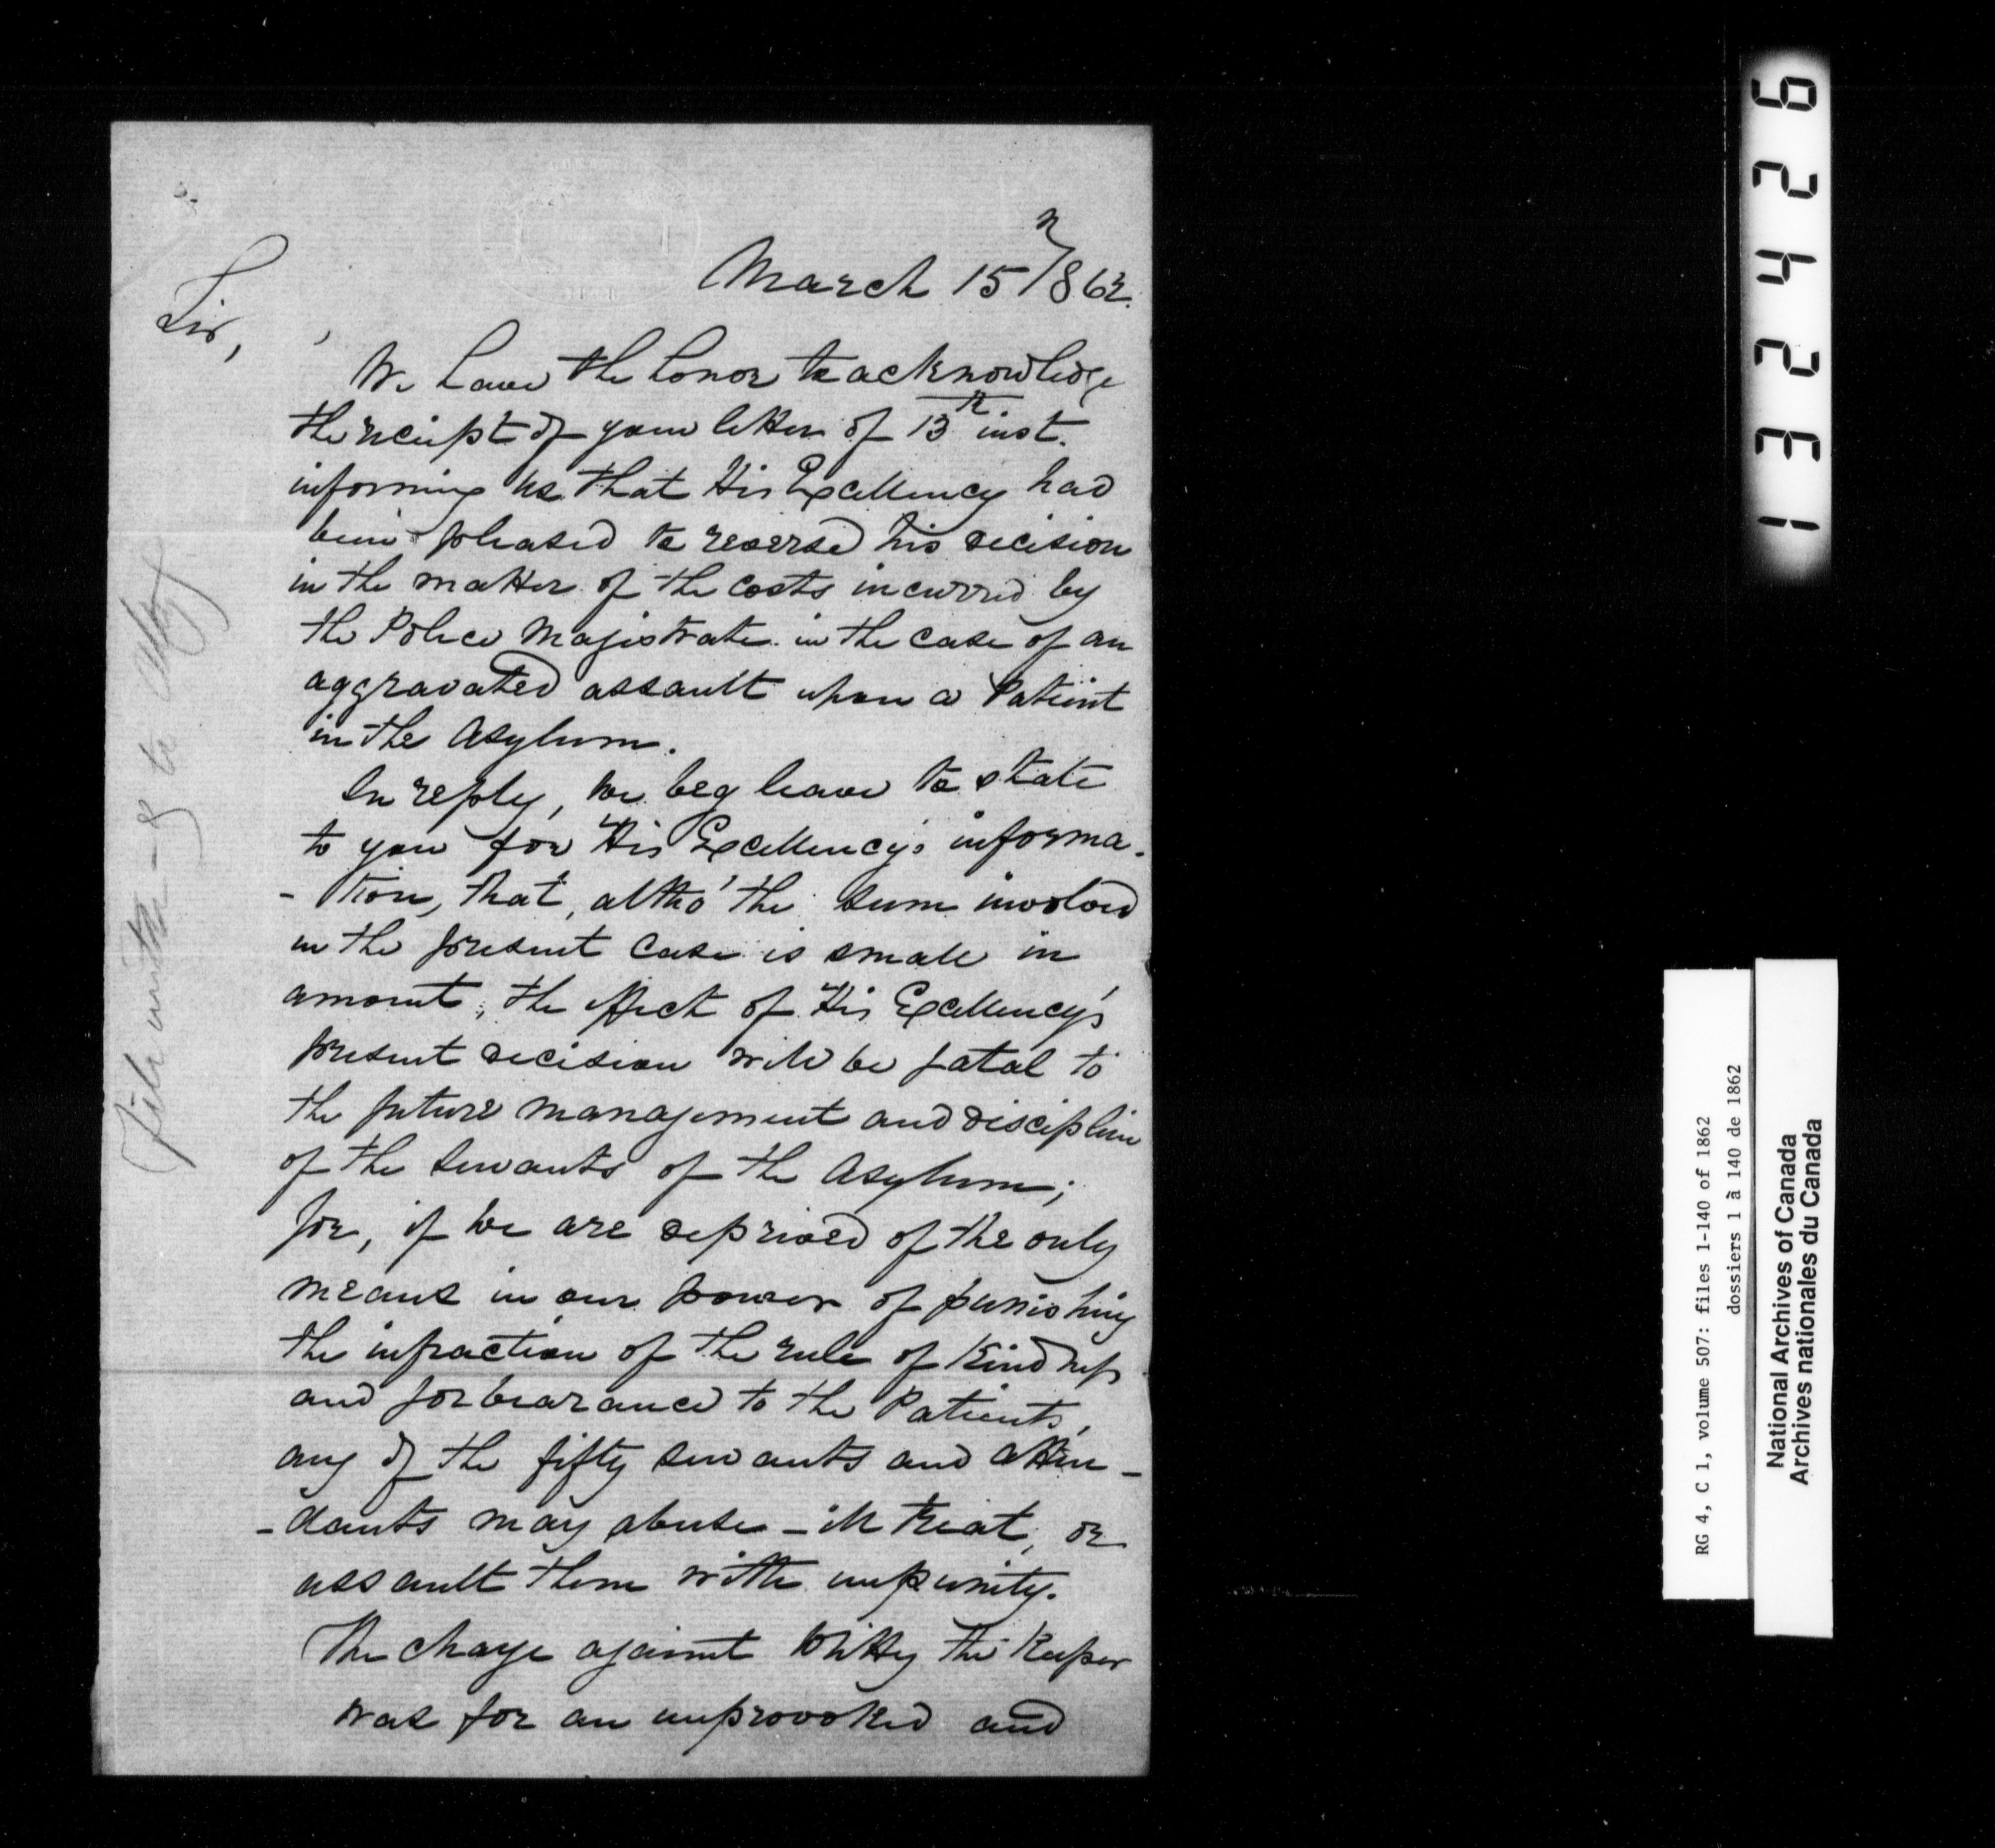 March 15th/862.
Sir,
We have the honor to acknowledge
the receipt of your letter of 13th inst.
informing us that His Excellency had
been pleased to reverse his decision
in the matter of the costs incurred by
the Police Magistrate in the case of an
aggravated assault upon a Patient
in the Asylum.
In reply, we beg leave to state
to you for His Excellency's informa-
-tion, that, altho' the sum involved
in the present case is small in
amount, the effect of His Excellency's
present decision will be fatal to
the future management and discipline
of the servants of the Asylum;
for, if we are deprived of the only
means in our power of punishing
the infraction of the rule of Kindness
and forbearance to the Patients,
any of the fifty servants and atten-
-dants may abuse - ill treat, or
assault them with impunity.
The charge against Whitty the Keeper
was for an unprovoked and
File with - 8 to
132426
RG 4, C 1, volume 507: files 1-140 of 1862
dossiers 1 à 140 de 1862
National Archives of Canada
Archives nationales du Canada